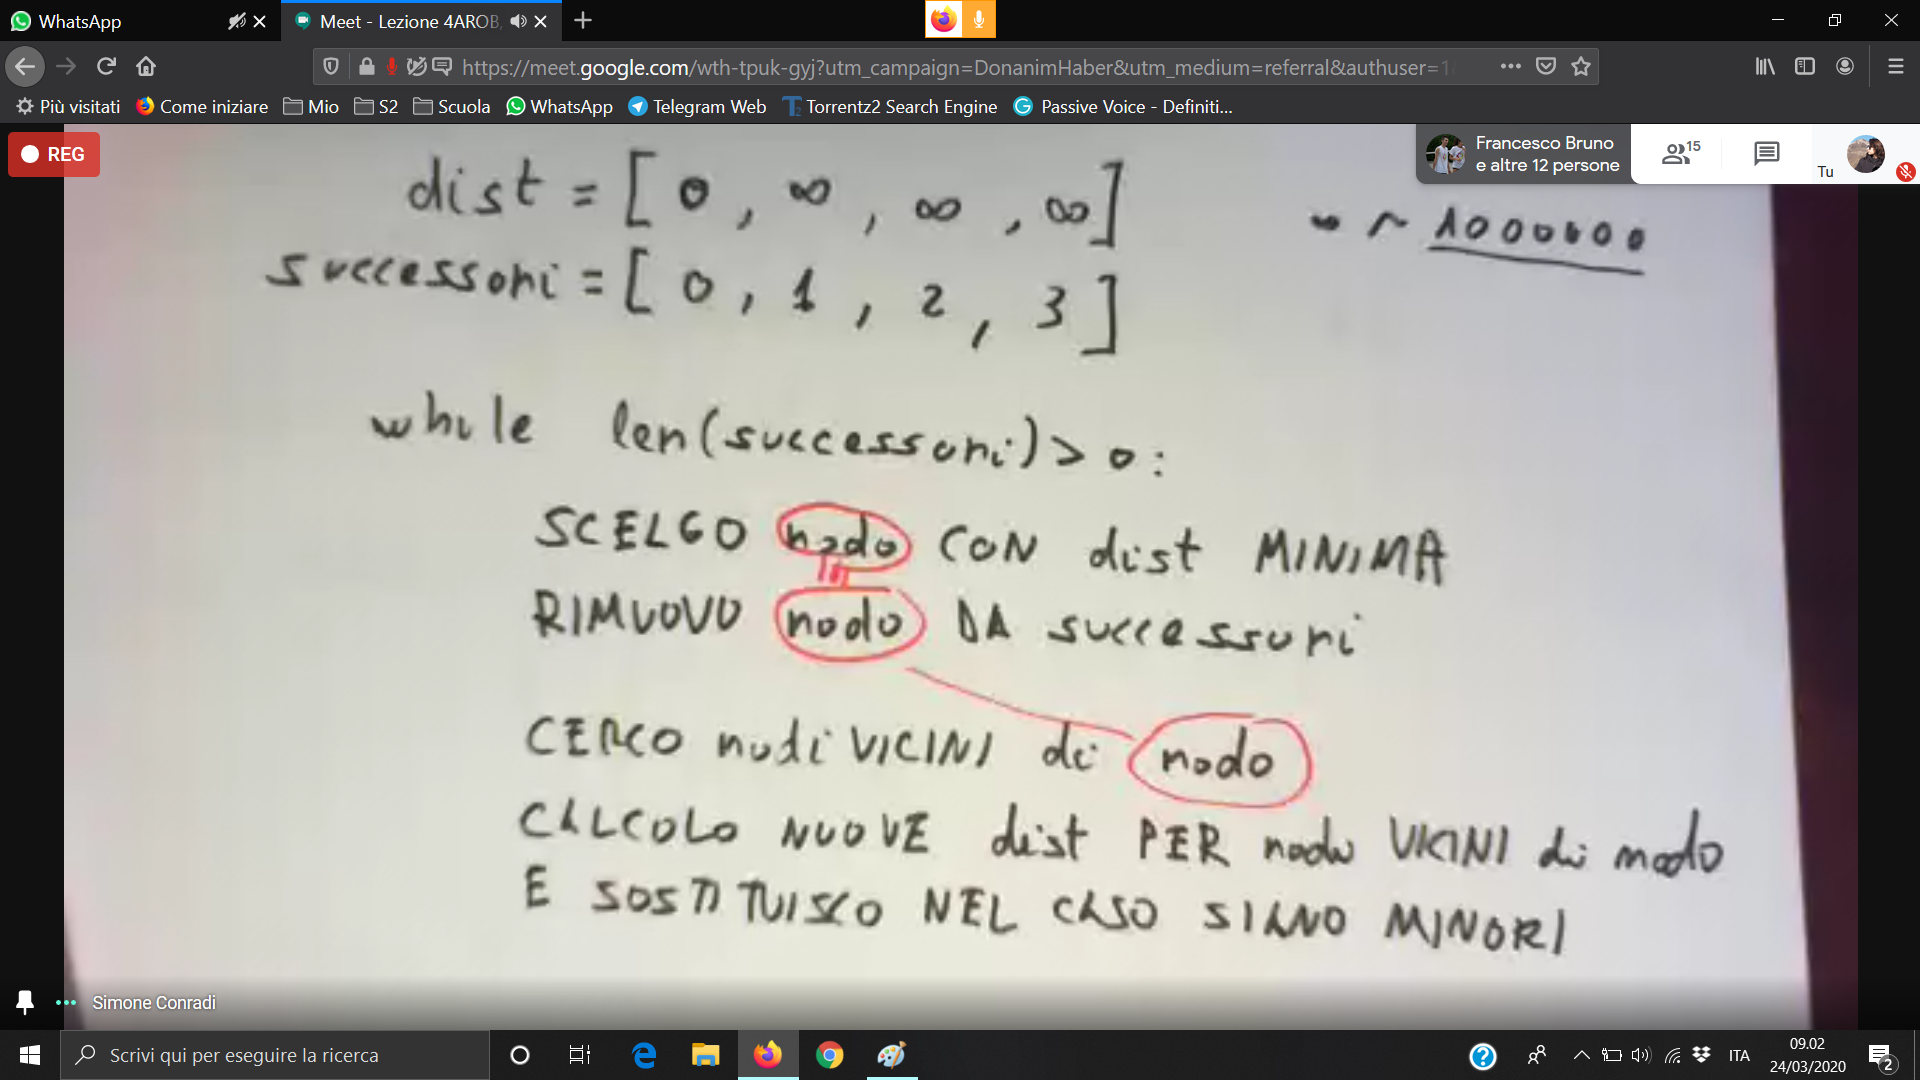 WhatsApp
Meet - Lezione 4AROB,
https://meet.google.com/wth-tpuk-gyj?utm_campaign=DonanimHaber&utm_medium=referral&authuser=1
Più visitati Come iniziare Mio S2 Scuola WhatsApp Telegram Web Torrentz2 Search Engine Passive Voice - Definiti...
REG
Francesco Bruno
e altre 12 persone
15
Tu
dist = [ 0 , ∞ , ∞ , ∞ ]
∞ ~ 1000000
successori = [ 0 , 1 , 2 , 3 ]
while len(successori) > 0 :
SCELGO nodo CON dist MINIMA
RIMUOVO nodo DA successori
CERCO nodi VICINI di nodo
CALCOLO NUOVE dist PER nodi VICINI di nodo
E SOSTITUISCO NEL CASO SIANO MINORI
Simone Conradi
Scrivi qui per eseguire la ricerca
ITA
09.02
24/03/2020
2